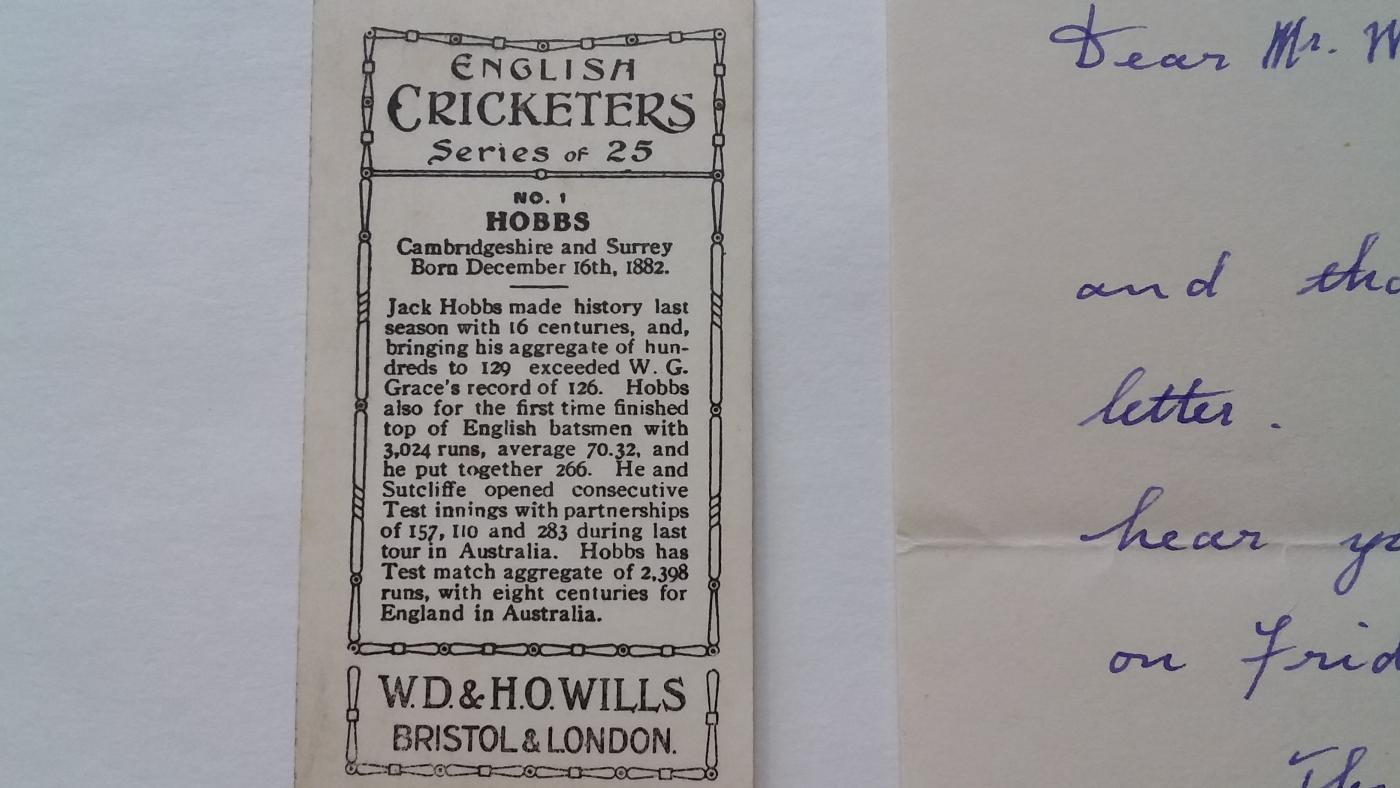 ENGLISH
CRICKETERS
Series OF 25
NO. 1
HOBBS
Cambridgeshire and Surrey
Born December 16th, 1882.
Jack Hobbs made history last
season with 16 centuries, and,
bringing his aggregate of hun-
dreds to 129 exceeded W. G.
Grace's record of 126. Hobbs
also for the first time finished
top of English batsmen with
3,024 runs, average 70.32, and
he put together 266. He and
Sutcliffe opened consecutive
Test innings with partnerships
of 157, 110 and 283 during last
tour in Australia. Hobbs has
Test match aggregate of 2,398
runs, with eight centuries for
England in Australia.
W.D. & H.O. WILLS
BRISTOL & LONDON.
Dear Mr.
and
letter.
hear
on